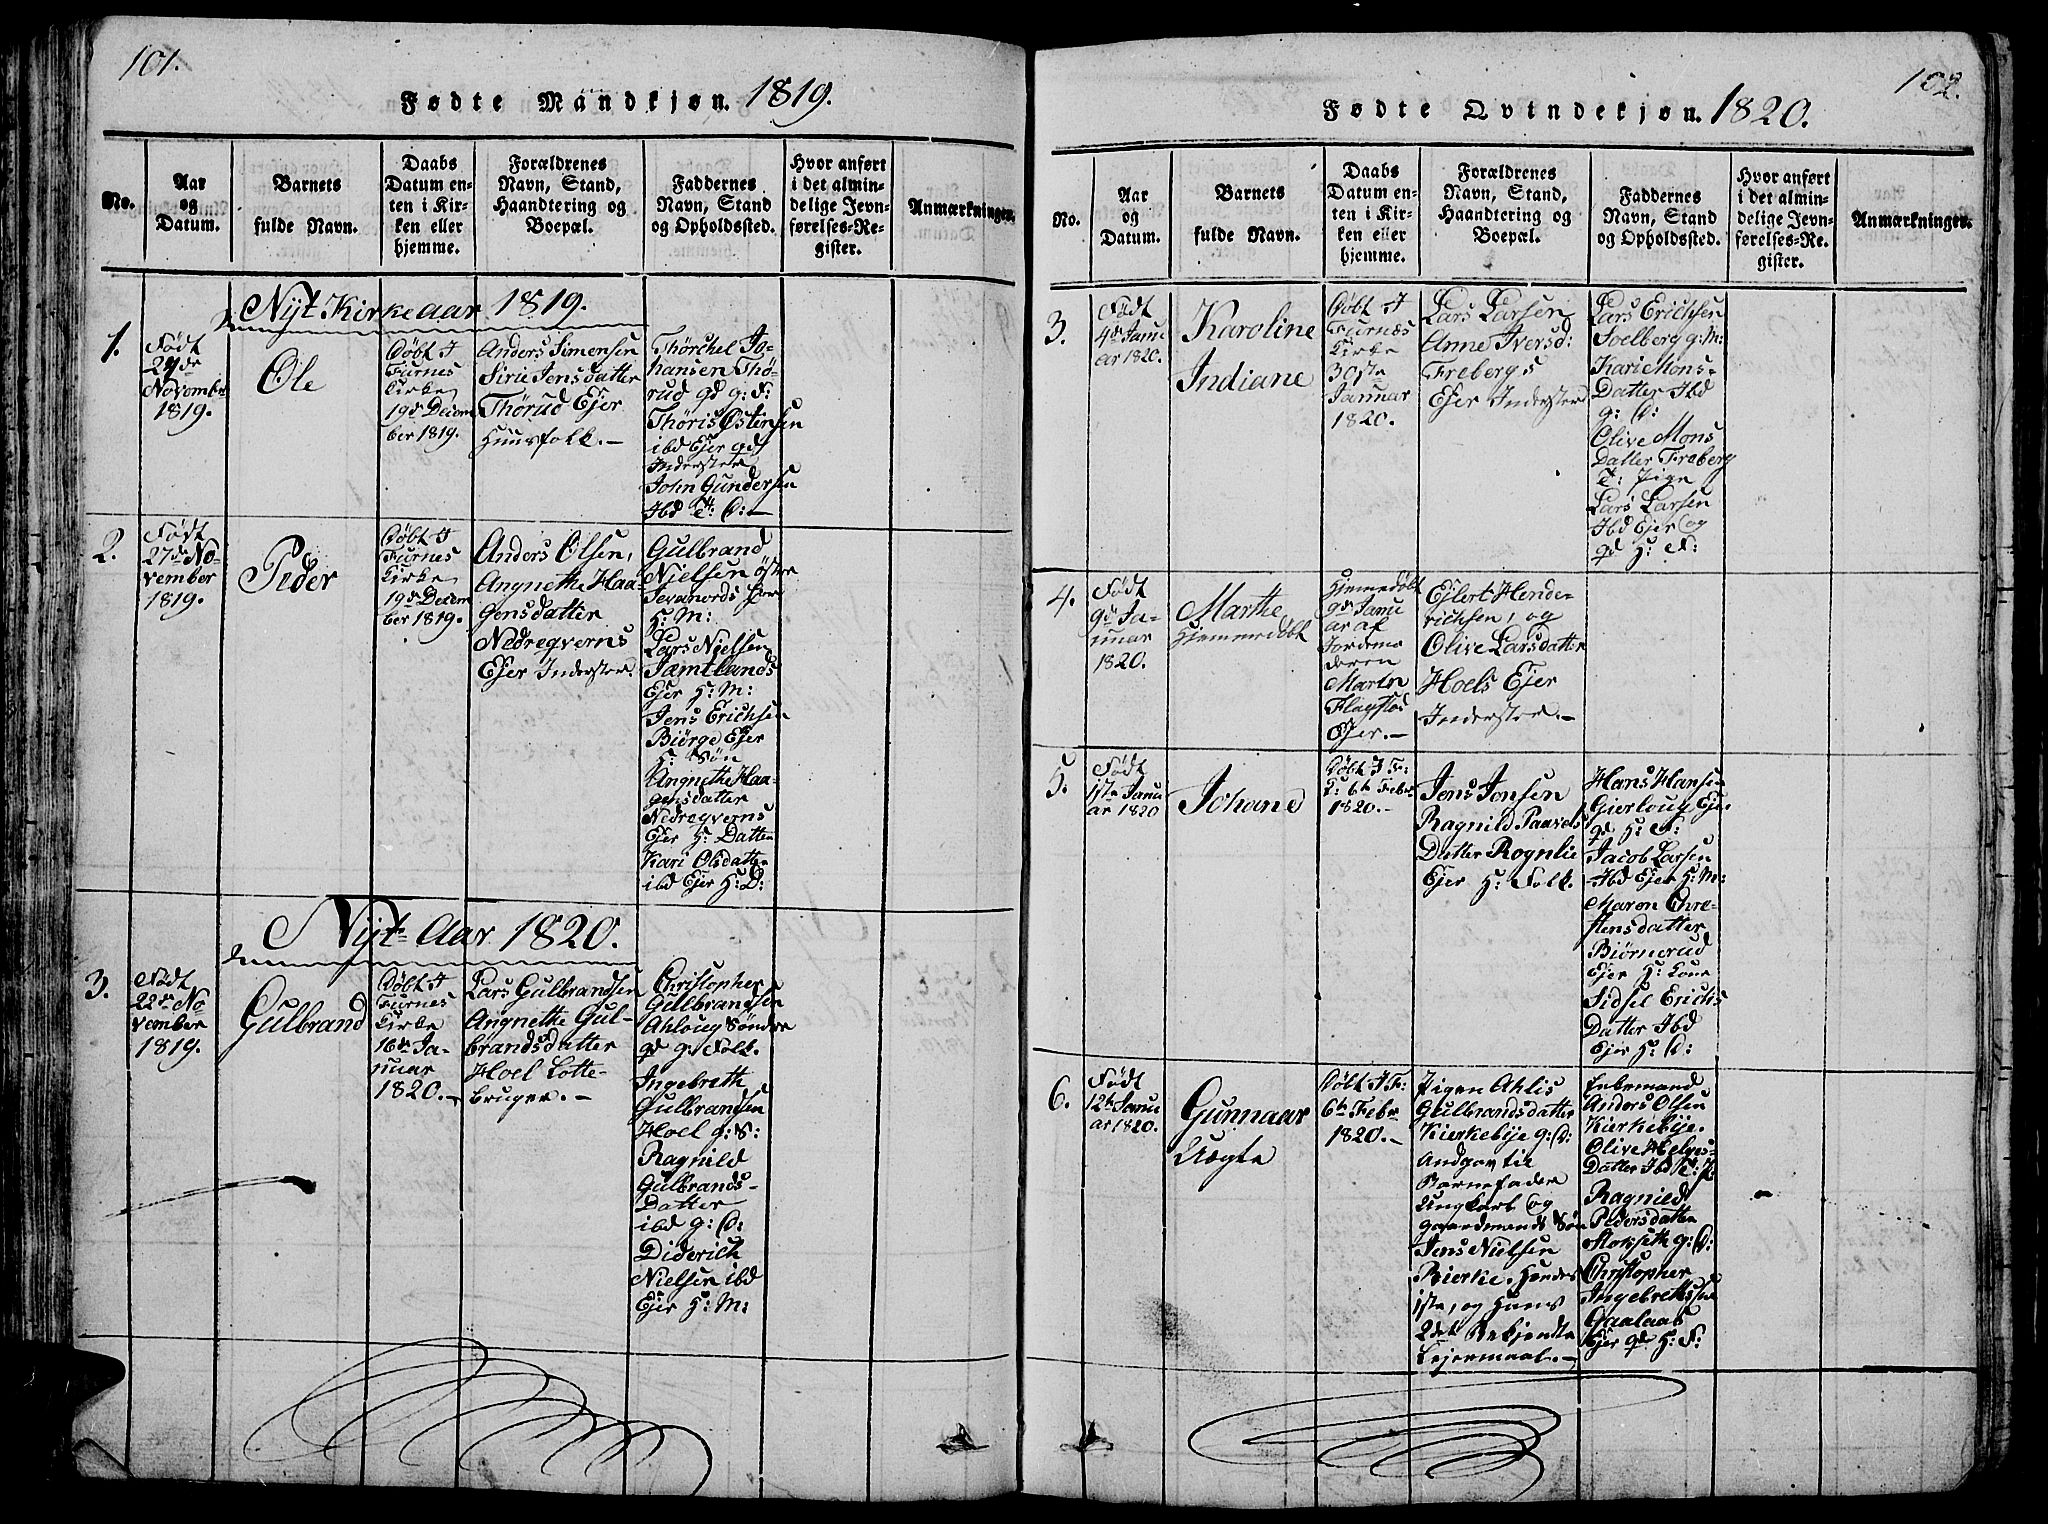 101.
Fødte Mandkjøn. 1819.
No.
Aar
og
Datum.
Barnets
fulde Navn.
Daabs
Datum en-
ten i Kir-
ken eller
hjemme.
Forældrenes
Navn, Stand,
Haandtering og
Boepæl.
Faddernes
Navn, Stand
og Opholdssted.
Hvor anført
i det almin-
delige Jevn-
førelses-Re-
gister.
Anmærkninger.
Nyt Kirkeaar 1819.
1.
Født
24de
November
1819.
Ole
Døbt I
Furnes
Kirke
19de Decem
ber 1819.
Anders Simensen
Sirie Jensdatter
Thørud Ejer
Huusfolk.-
Thørchel Jo-
hansen Thø-
rud gd g: F:
Thøris Østensen
ibd Ejer gd
Inderster
John Gundersen
Ibd T: D:-
2.
Født
27de No-
vember
1819.
Peder
Døbt I
Furnes
Kirke
19de Decem
ber 1819.
Anders Olsen,
Angnethe Haa-
gensdatter
Nedreqverns
Ejer Inderster.
Gulbrand
Nielsen øster
H: M:
Lars Nielsen
Jæmtlands
Ejer H: M:
Jens Erichsen
Biørge Ejer
H: Søn
Angnethe Haa-
gensdatter
Nedreqverns
Ejer H: Datter
Kari Olsdatter
ibd Ejer H: D:
Nyt Aar 1820.
3.
Født
22de No
vember
1819.
Gulbrand
Døbt I
Furnes
Kirke
16de Ja-
nuar
1820.-
Lars Gulbrandsen
Angnethe Gul-
brandsdatter
Hoel Lotte-
bruger.-
Christopher
Gulbrandsen
Ahloug Søndre
gd g: Folk.
Ingebreth
Gulbrandsen
Hoel g: S:
Ragnild
Gulbrands-
Datter
ibd g: D:
Diderich
Nielsen ibd
Ejer H: M:
102.
Fødte Qvindekjøn. 1820.
No.
Aar
og
Datum.
Barnets
fulde Navn.
Daabs
Datum en-
ten i Kir-
ken eller
hjemme.
Forældrenes
Navn, Stand,
Haandtering og
Boepæl.
Faddernes
Navn, Stand
og Opholdssted.
Hvor anført
i det almin-
delige Jevn-
førelses-Re-
gister.
Anmærkninger.
3.
Født
4de Janu
ar 1820.
Karoline
Indiane
Døbt I
Furnæs
Kirke
30ste
Januar
1820.
Lars Larsen
Anne Iversd:
Frebergs
Ejer Inderster
Lars Erichsen
Soelberg g: M:
Kari Mons-
Datter Ibd
g: D:
Olive Mons
Datter Freberg
T: Pige
Lars Larsen
Ibd Ejer og
gd H: F:
4.
Født
9de Ja-
nuar
1820.
Marthe
Hjemmedøbt
Hjemmedøbt
9de Janu
ar af
Jordemo
deren
Flagstøs
Ejer.-
Ejlert Hende-
richsen, og
Olive Larsdatter
Hoels Ejer
Inderster.-
5.
Født
1ste Janu
ar 1820
Johane
Døbt I F:
K: 6te Febr
1820.-
Jens Jonsen
Ragnild Paavels
Datter Rognlie
Ejer H: Folk.
Hans Hansen
Gierloug Ejer
gd H: F:
Jacob Larsen
Ibd Ejer H: M:
Maren Chre-
stensdatter
Biørnerud
Ejer H: Kone
Sidsel Erichs
Datter Ibd
Ejer H: D:
6.
Født
12te Janu
ar 1820.
Gunnaar
Uægte
Døbt I F:
6te Febr
1820.-
Pigen Ahlis
Gulbrandsdatter
Kierkebye g: D:
Andgav til
Barnefader
Ungkarl og
Gaardmands Søn
Jens Nielsen
Bierke, Hendes
1ste, og Hans
2det Bekjendte
Lejermaal.-
Enkemand
Anders Olsen
Kierkebye.
Olive Helges-
Datter Ibd T: P
Ragnild
Pedersdatter
Stokseth g: D:
Christopher
Ingebretsen
Gaalaas
Ejer gd H: F: